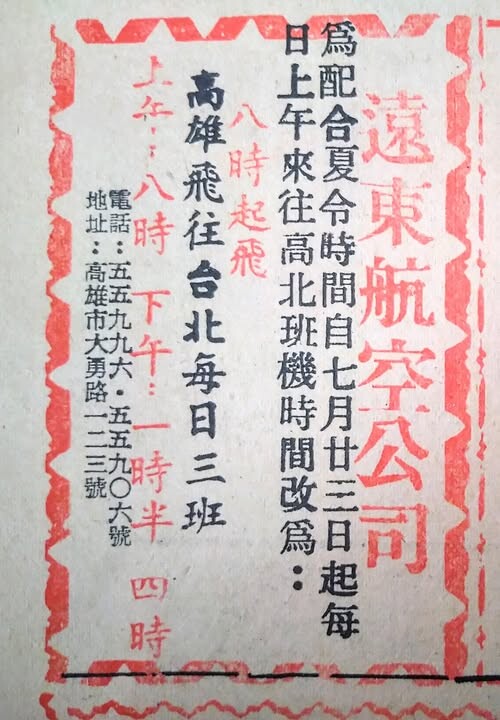 遠東航空公司
為配合夏令時間自七月廿三日起每
日上午來往高北班機時間改為：
八時起飛
高雄飛往台北每日三班
上午：八時 下午：一時半 四時
電話：五五九九六·五五九〇六號
地址：高雄市大勇路一二三號